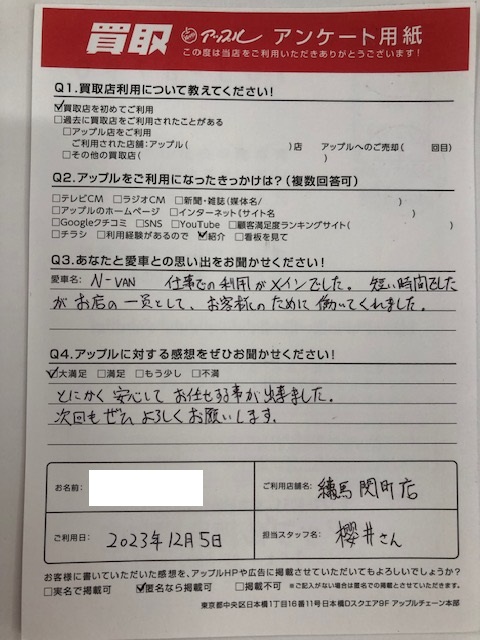 買取 アップル アンケート用紙
この度は当店をご利用いただきありがとうございます!
Q1.買取店利用について教えてください!
☑買取店を初めてご利用
□過去に買取店をご利用されたことがある
□アップル店をご利用
ご利用された店舗:アップル( )店 アップルへのご売却( 回目)
□その他の買取店( )
Q2.アップルをご利用になったきっかけは?(複数回答可)
□テレビCM □ラジオCM □新聞・雑誌(媒体名/ )
□アップルのホームページ □インターネット(サイト名 )
□Googleクチコミ □SNS □YouTube □顧客満足度ランキングサイト( )
□チラシ □利用経験があるので ☑紹介 □看板を見て
Q3.あなたと愛車との思い出をお聞かせください!
愛車名: N-VAN 仕事での利用がメインでした。短い時間でした
が お店の一員として、お客様のために働いてくれました。
Q4.アップルに対する感想をぜひお聞かせください!
☑大満足 □満足 □もう少し □不満
とにかく安心してお任せする事が出来ました。
次回もぜひよろしくお願いします。
お名前: ご利用店舗名: 練馬関町店
ご利用日: 2023年12月5日 担当スタッフ名: 櫻井さん
お客様に書いていただいた感想を、アップルHPや広告に掲載させていただいてもよろしいでしょうか?
□実名で掲載可 ☑匿名なら掲載可 □掲載不可 ※ご記入がない場合は匿名での掲載とさせていただきます。
東京都中央区日本橋1丁目16番11号日本橋Dスクエア9F アップルチェーン本部